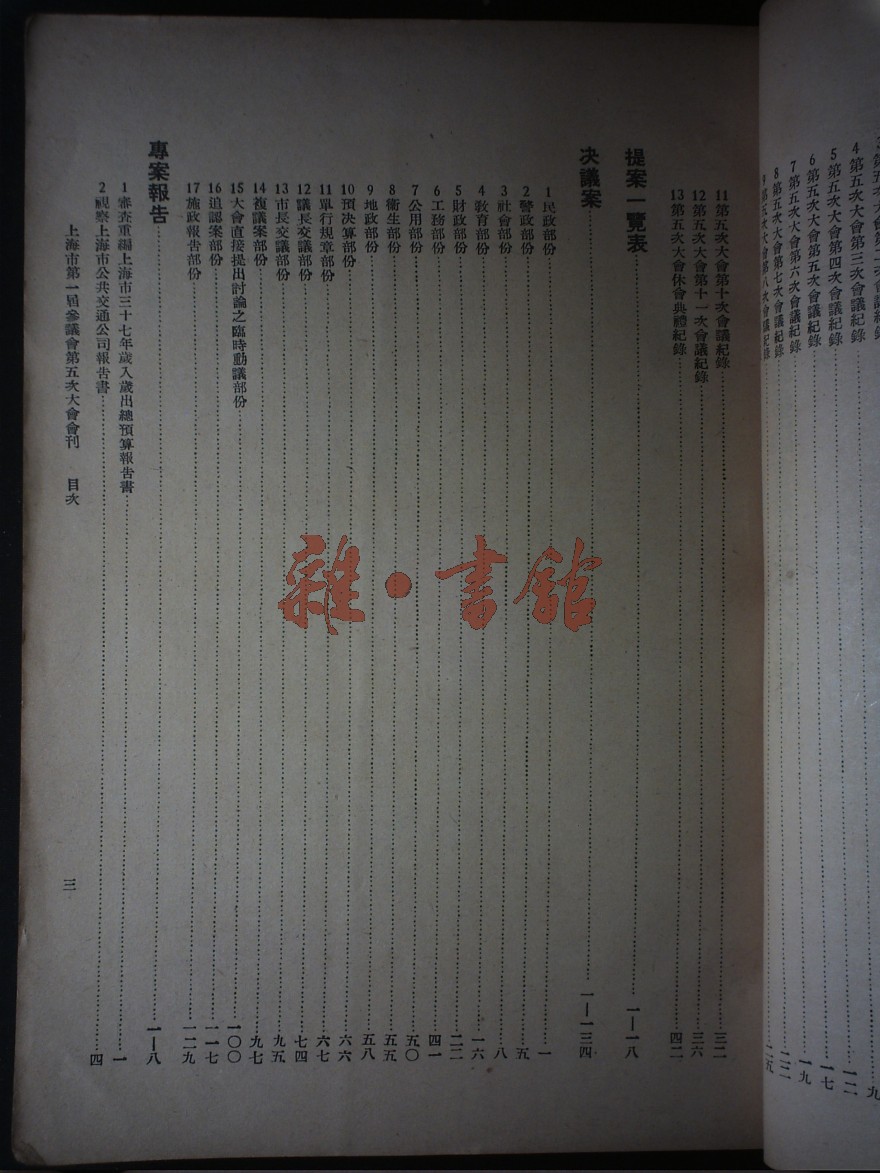 4 第五次大會第三次會議紀錄
5 第五次大會第四次會議紀錄
6 第五次大會第五次會議紀錄……一七
7 第五次大會第六次會議紀錄……一九
8 第五次大會第七次會議紀錄
9 第五次大會第八次會議紀錄
11 第五次大會第十次會議紀錄……三二
12 第五次大會第十一次會議紀錄……三六
13 第五次大會休會典禮紀錄……四二
提案一覽表……一—一八
決議案……一—一三四
1 民政部份……一
2 警政部份……五
3 社會部份……八
4 教育部份……一六
5 財政部份……二二
6 工務部份……四一
7 公用部份……五〇
8 衞生部份……五五
9 地政部份……五八
10 預決算部份……六六
11 單行規章部份……六七
12 議長交議部份……七四
13 市長交議部份……九五
14 複議案部份……九七
15 大會直接提出討論之臨時動議部份……一〇〇
16 追認案部份……一一七
17 施政報告部份……一二九
專案報告……一—八
1 審查重編上海市三十七年歲入歲出總預算報告書……一
2 視察上海市公共交通公司報告書……四
上海市第一屆參議會第五次大會會刊 目次
三
雜·書館